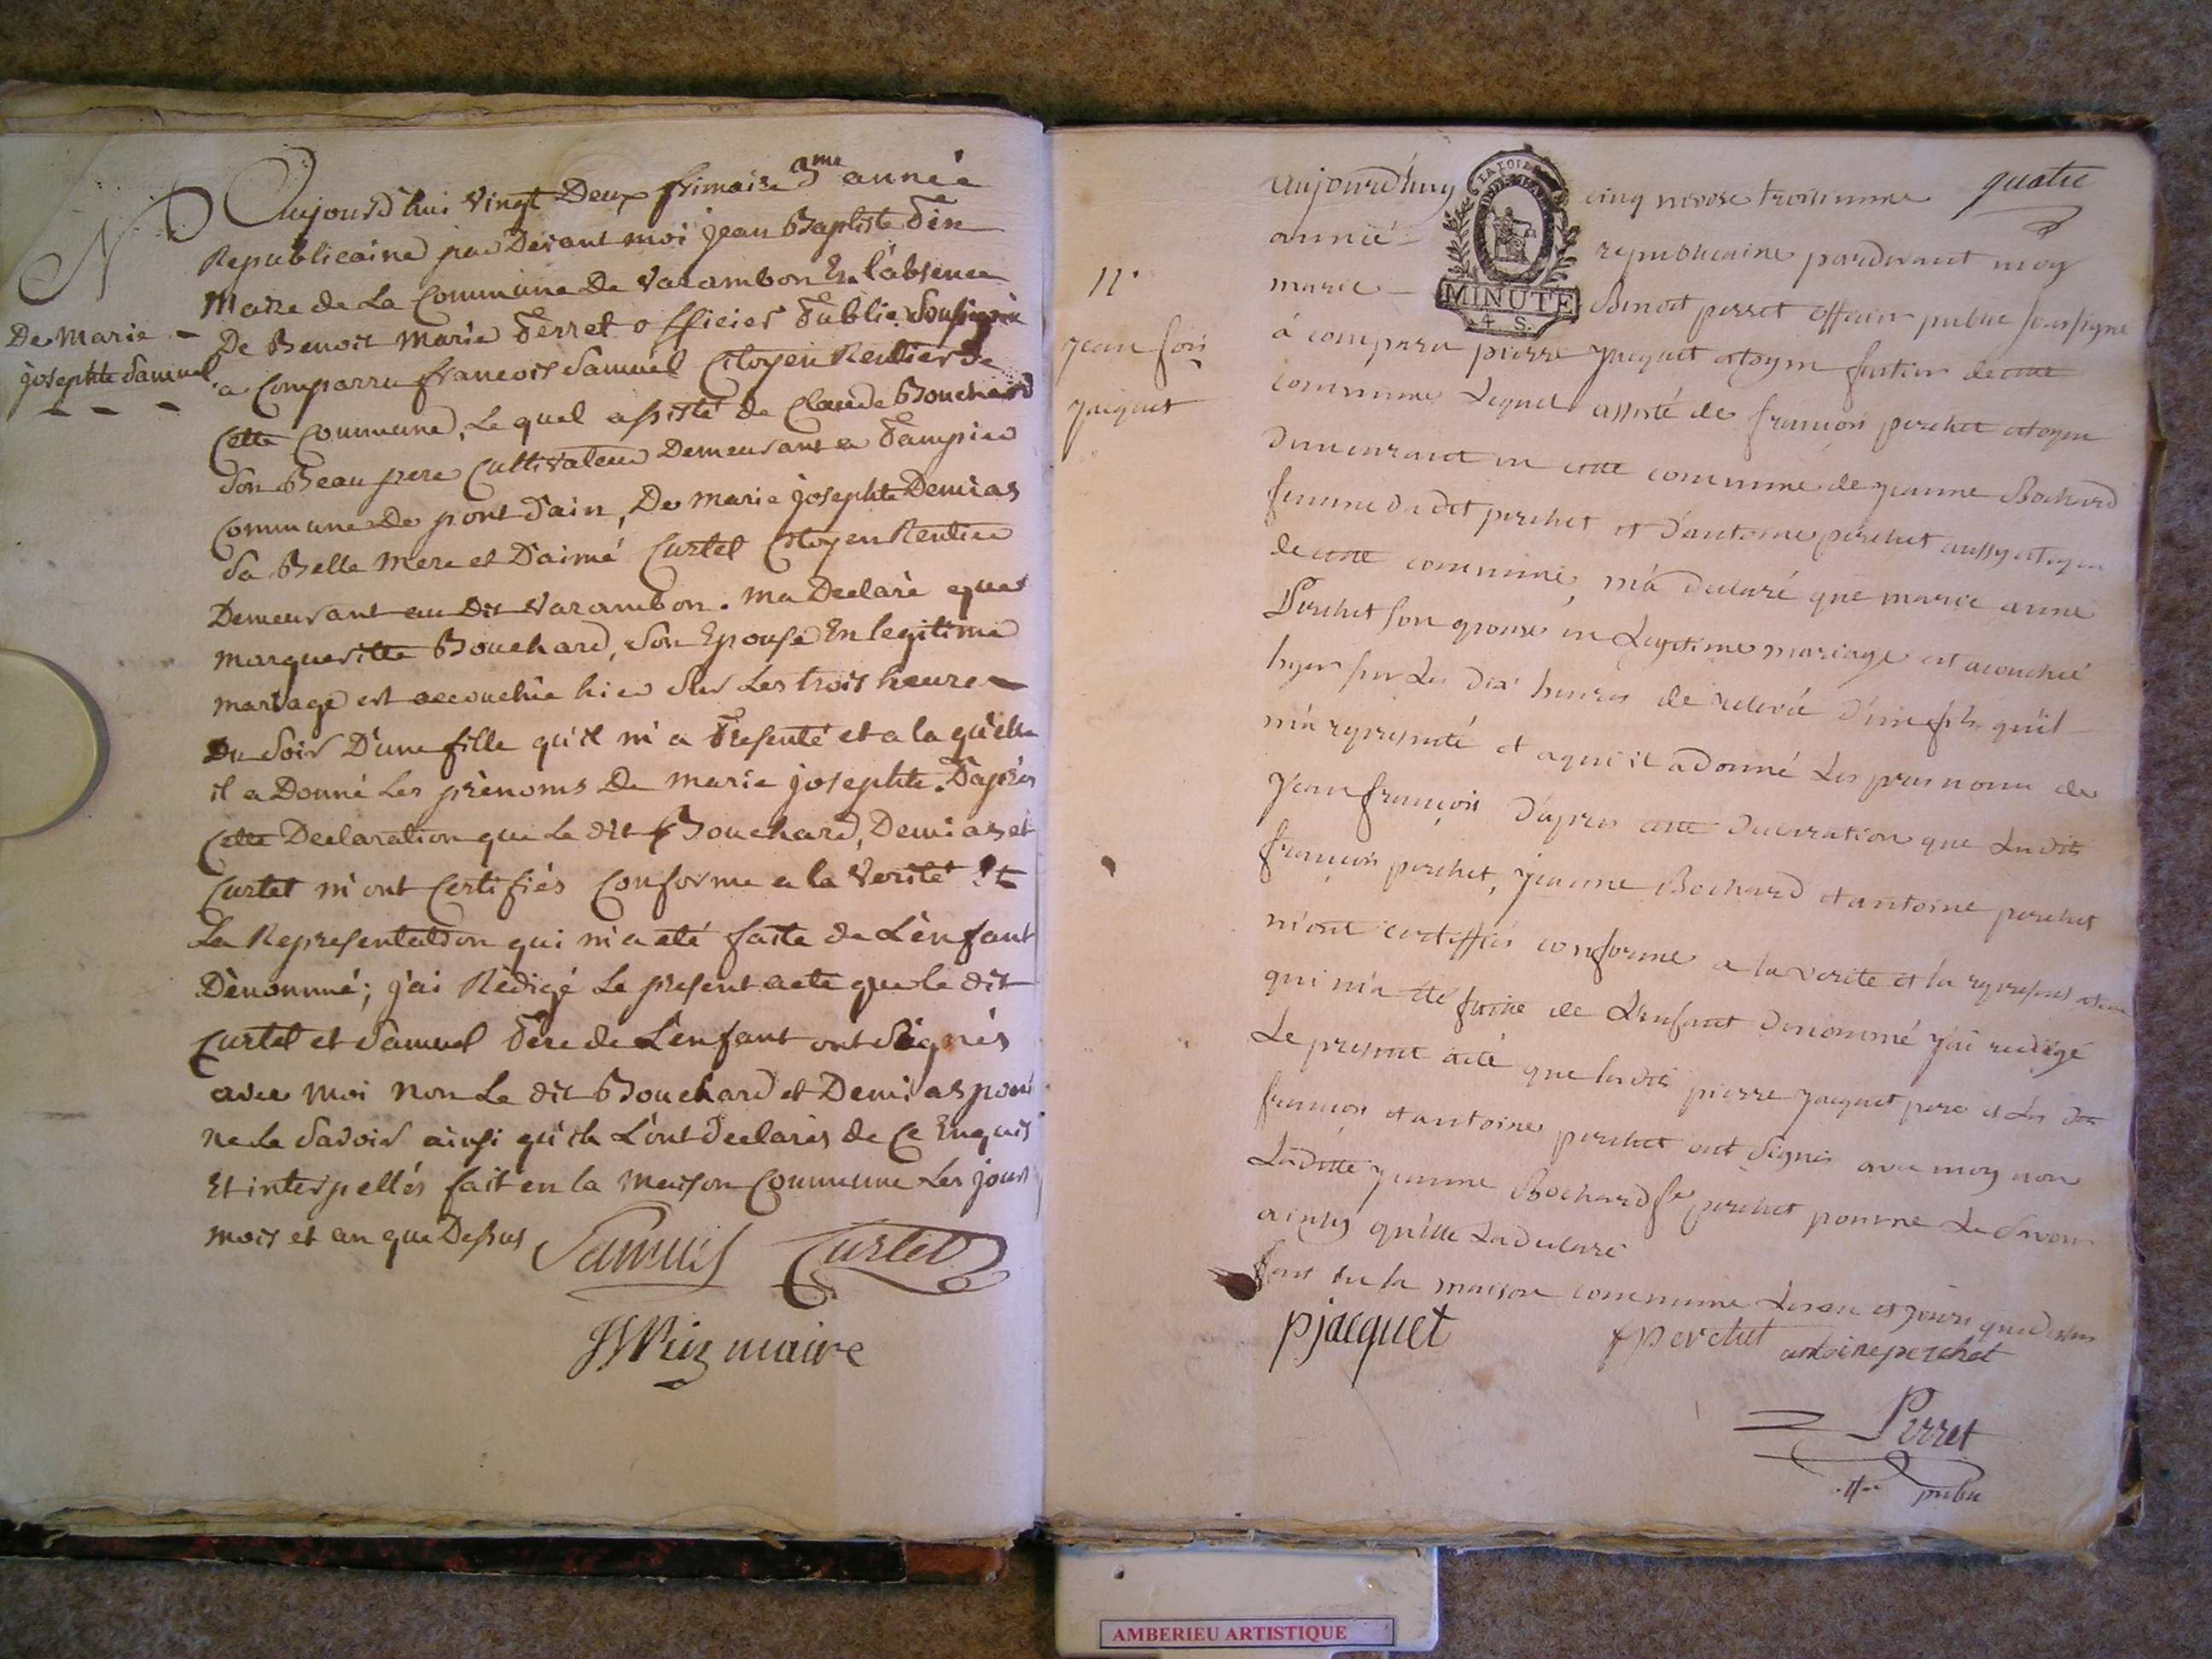 N
De Marie -
josephte Samuel
Aujourd'hui vingt Deux frimaire 3me année
Republicaine par Devant moi jean Baptiste Pin
Maire de La Commune De Varambon En l'absence
De Benoit Marie Perret officier Public Soussigné
a Comparru francois Samuel Citoyen Rentier de
Cette Commune, Le quel assisté de Claude Bouchard
son Beau pere Cultivateur Demeurant a Pampier
Commune De pont d'ain, De marie josephte Demias
sa Belle mere et D'aimé Curtet Citoyen Rentier
Demeurant au Dit Varambon. ma Declaré que
margueritte Bouchard, son Epouse En legitime
mariage est accouchée hier sur Les trois heure
Du soir D'une fille qu'il m'a Presenté et a la quelle
il a Donné Les prénoms De marie josephte. D'après
Cette Declaration que Le dit Bouchard, Demias et
Curtet m'ont Certifiés Conforme a la Verité Et
La Representation qui m'a eté faite de L'enfant
Dénommé; j'ai Rédigé Le present acte que le dit
Curtet et Samuel Père de L'enfant ont Signés
avec moi non Le dit Bouchard et Demias pour
ne Le Savoir ainsi qu'ils L'ont declarés de Ce Enquis
Et interpellés fait en la maison Commune Les jour
mois et an que Dessus Samuel Curtet
JBPin maire
quatre
11e
jean fois
jacquet
aujourd'huy cinq nivose troisieme
année republicaine pardevant moy
LA LOI
MINUTE
4 S.
marie Benoit perret officier public soussigné
à comparu pierre jacquet citoyen fustier de cette
commune Lequel assisté de françois perchet citoyen
demeurant en cette commune de jeanne Bochard
femme dudit perchet et d'antoine perchet aussy citoyen
de cette commune, m'a declaré que marie anne
Perchet son epouse en Legitime mariage est acouchée
hyer sur Les dix heures de relevée d'un fils qu'il
m'a representé et a qui il a donné Les prenoms de
Jean françois d'apres cette declaration que Lesdits
françois perchet, jeanne Bochard et antoine perchet
m'ont certiffiés conforme a la verite et la representation
qui m'a été faitte de L'enfant denommé j'ai redigé
Le present acte que ledit pierre jacquet pere et Les dits
françois et antoine perchet ont signés avec moy non
Laditte jeanne Bochard fe perchet pour ne Le savoir
ainsy qu'elle La declaré
fait en la maison commune Les an et jour que dessus
pjacquet fperchet antoineperchet
Perret
off. public